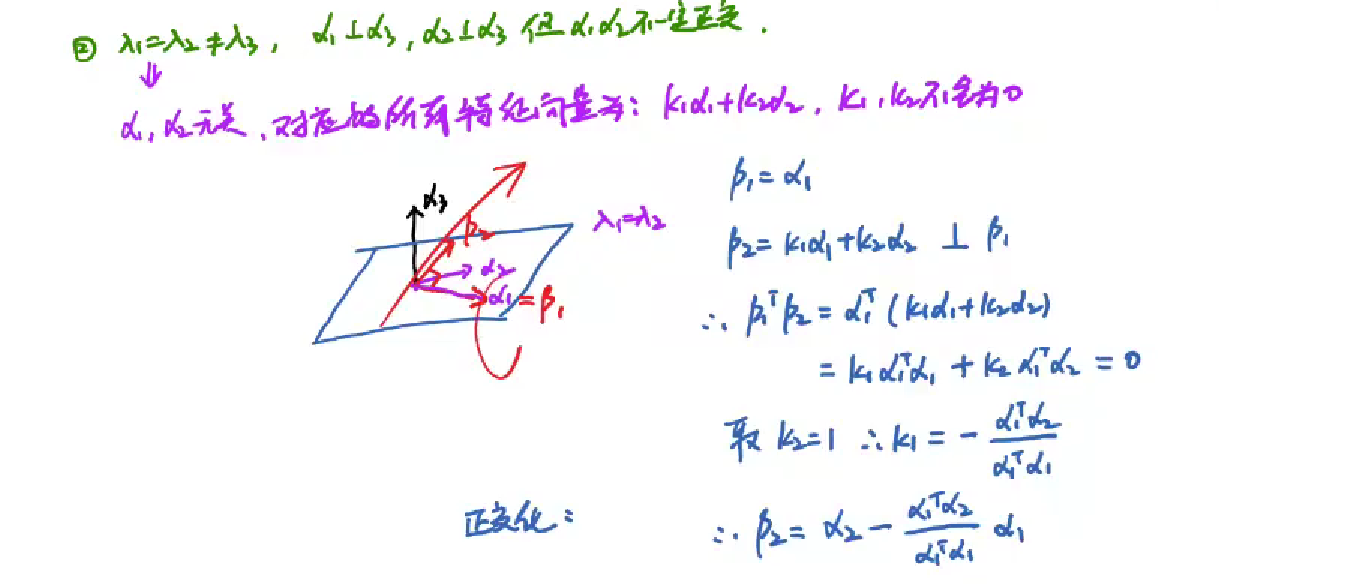 ② λ₁=λ₂≠λ₃, α₁⊥α₃, α₂⊥α₃ 但 α₁α₂不一定正交.
⇓
α₁, α₂无关, 对应的所有特征向量为: k₁α₁+k₂α₂, k₁,k₂不全为0
α₃
β₂
α₂
α₁=β₁
λ₁=λ₂
β₁=α₁
β₂=k₁α₁+k₂α₂ ⊥ β₁
∴ β₁ᵀβ₂=α₁ᵀ(k₁α₁+k₂α₂)
=k₁α₁ᵀα₁+k₂α₁ᵀα₂=0
取 k₂=1 ∴k₁=-α₁ᵀα₂/α₁ᵀα₁
正交化:
∴ β₂=α₂-α₁ᵀα₂/α₁ᵀα₁ α₁